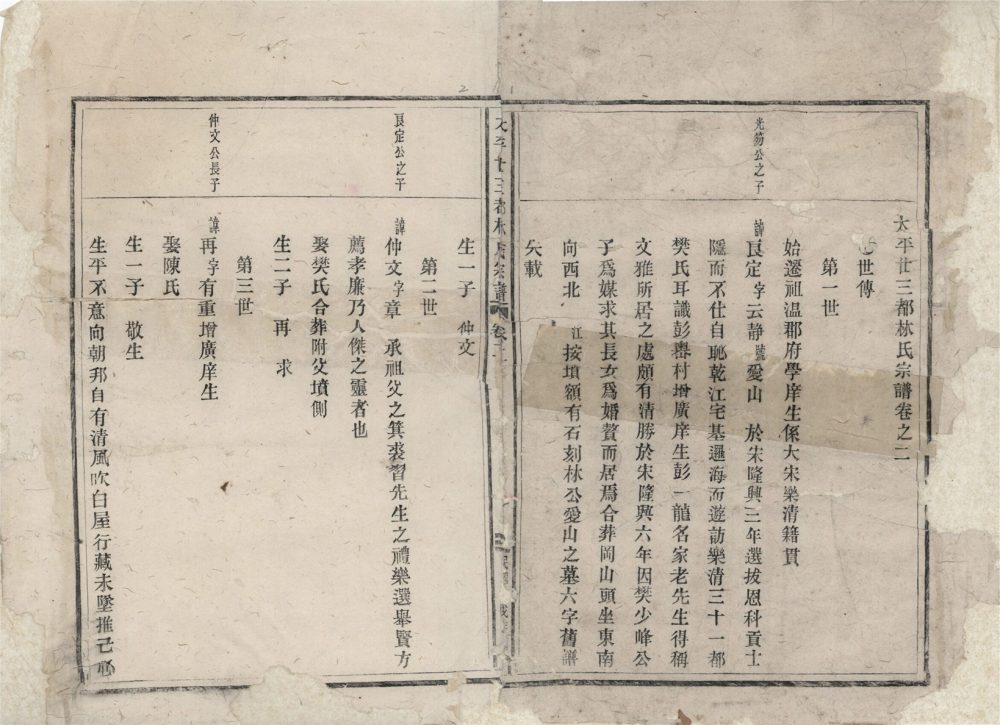 太平廿三都林氏宗譜卷之二
世傳
第一世
始遷祖溫郡府學庠生係大宋樂清籍貫
光笏公之子
諱良定字云静號愛山　於宋隆興三年選拔恩科貢士
隱而不仕自耻乾江宅基邇海而遊訪樂清三十一都
樊氏耳識彭嶴村增廣庠生彭一龍名家老先生得稱
文雅所居之處頗有清勝於宋隆興六年因樊少峰公
子爲媒求其長女爲婚贅而居焉合葬岡山頭坐東南
向西北　江按墳額有石刻林公愛山之墓六字舊譜
失載
太平廿三都林氏宗譜
卷之二
生一子　仲文
第二世
良定公之子
諱仲文字章　承祖父之箕裘習先生之禮樂選舉賢方
薦孝廉乃人傑之靈者也
娶樊氏合葬附父墳側
生二子　再　求
第三世
仲文公長子
諱再字有重增廣庠生
娶陳氏
生一子　敬生
生平不意向朝邦自有清風吹白屋行藏未墜推己心